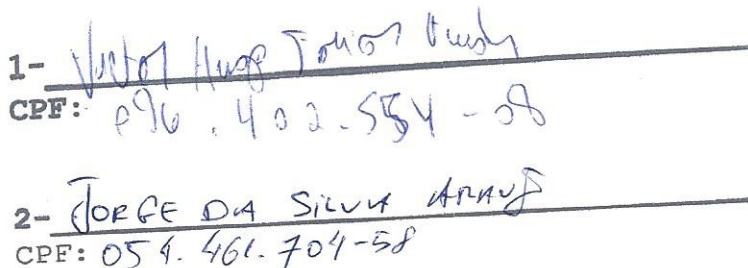 1- Victor Hugo
CPF: 096.402.554-08
2- JORGE DA SILVA ARAUJ
CPF: 054.461.704-58